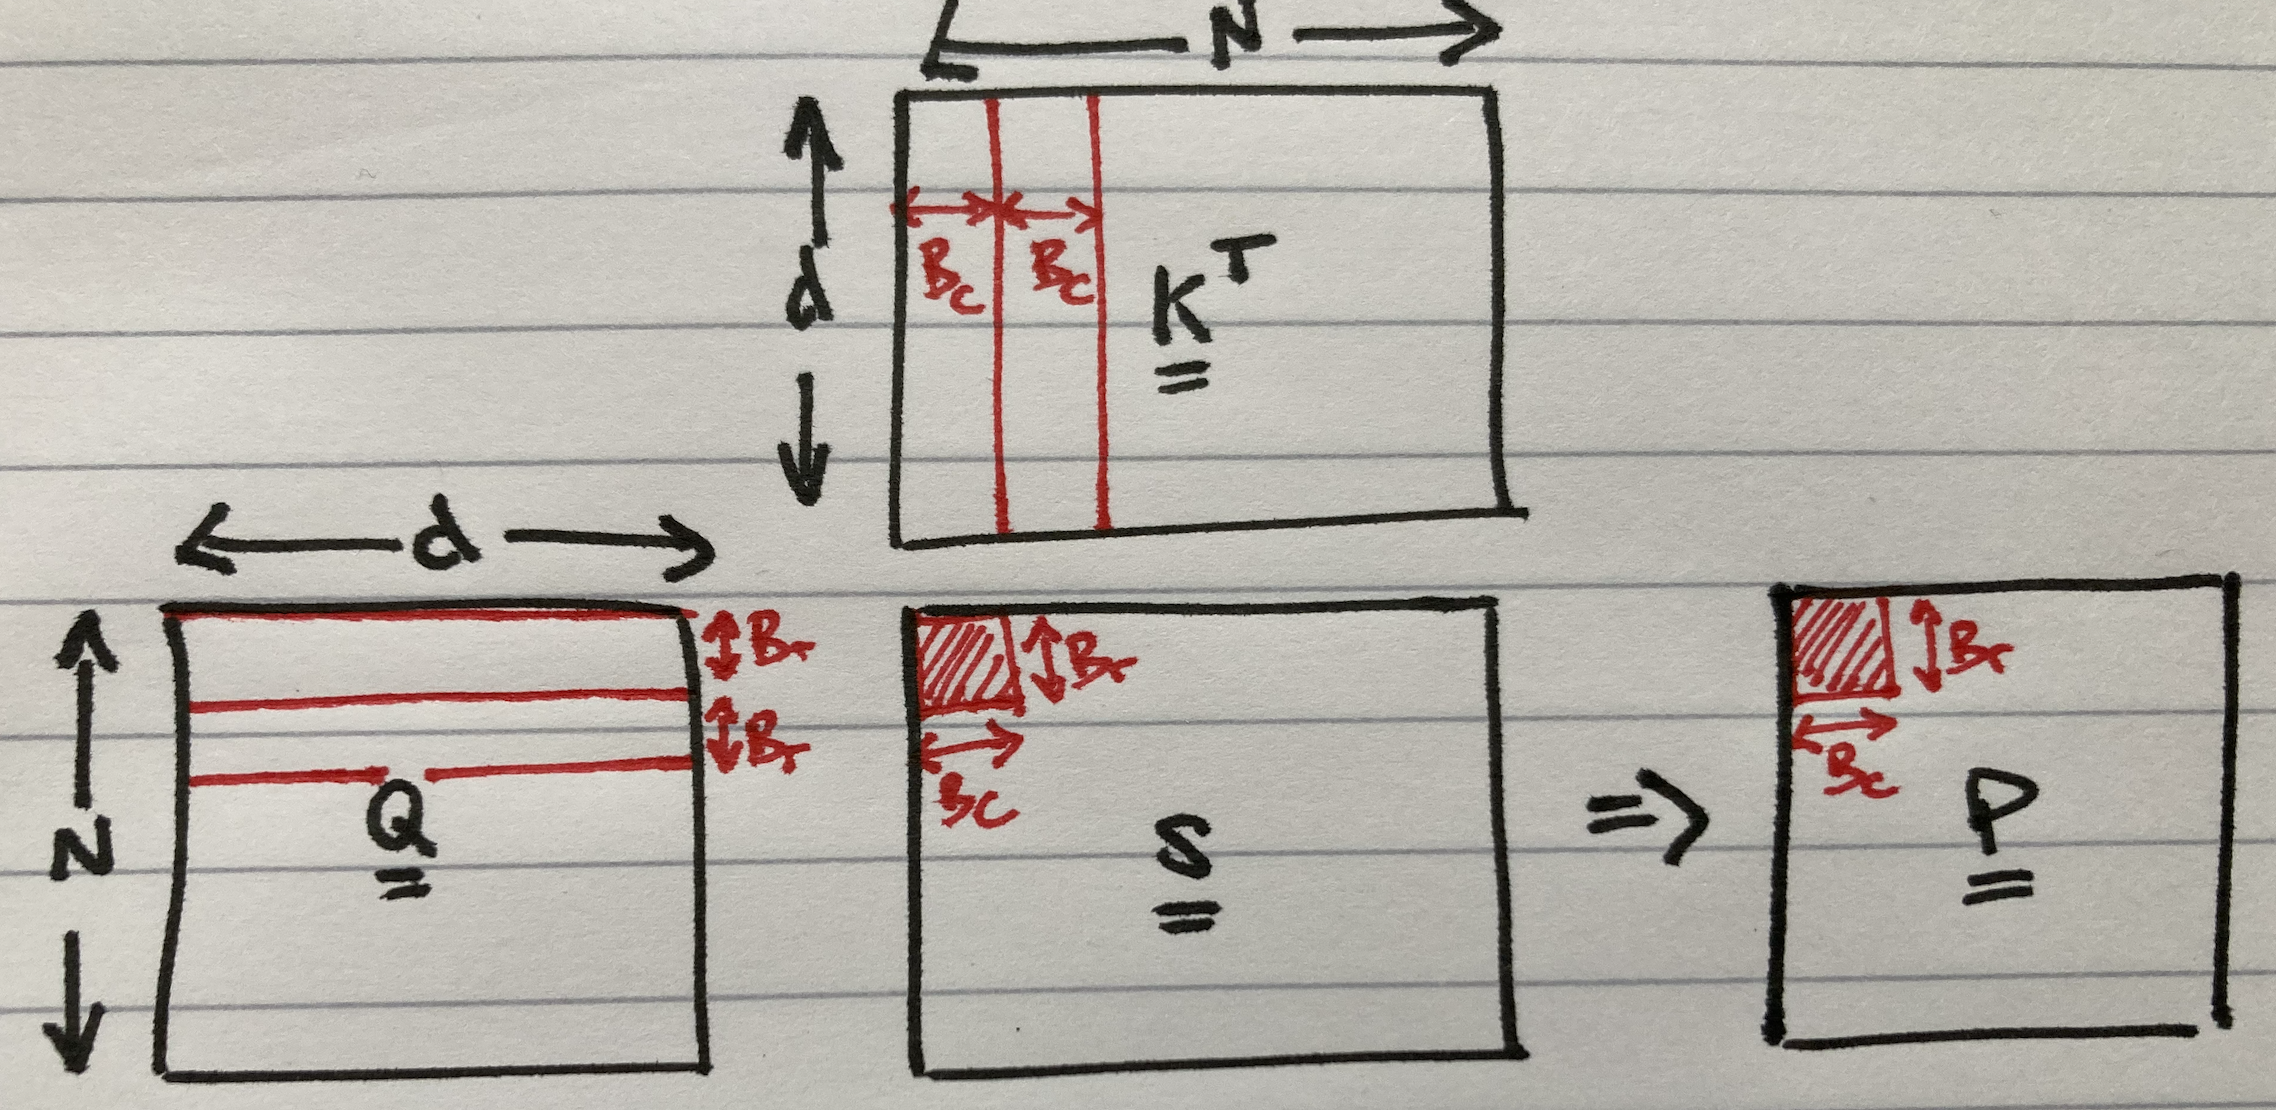 N
d
B_c B_c
K^T
d
N
B_r
B_r
Q
B_r
B_c
S
=>
B_r
B_c
P